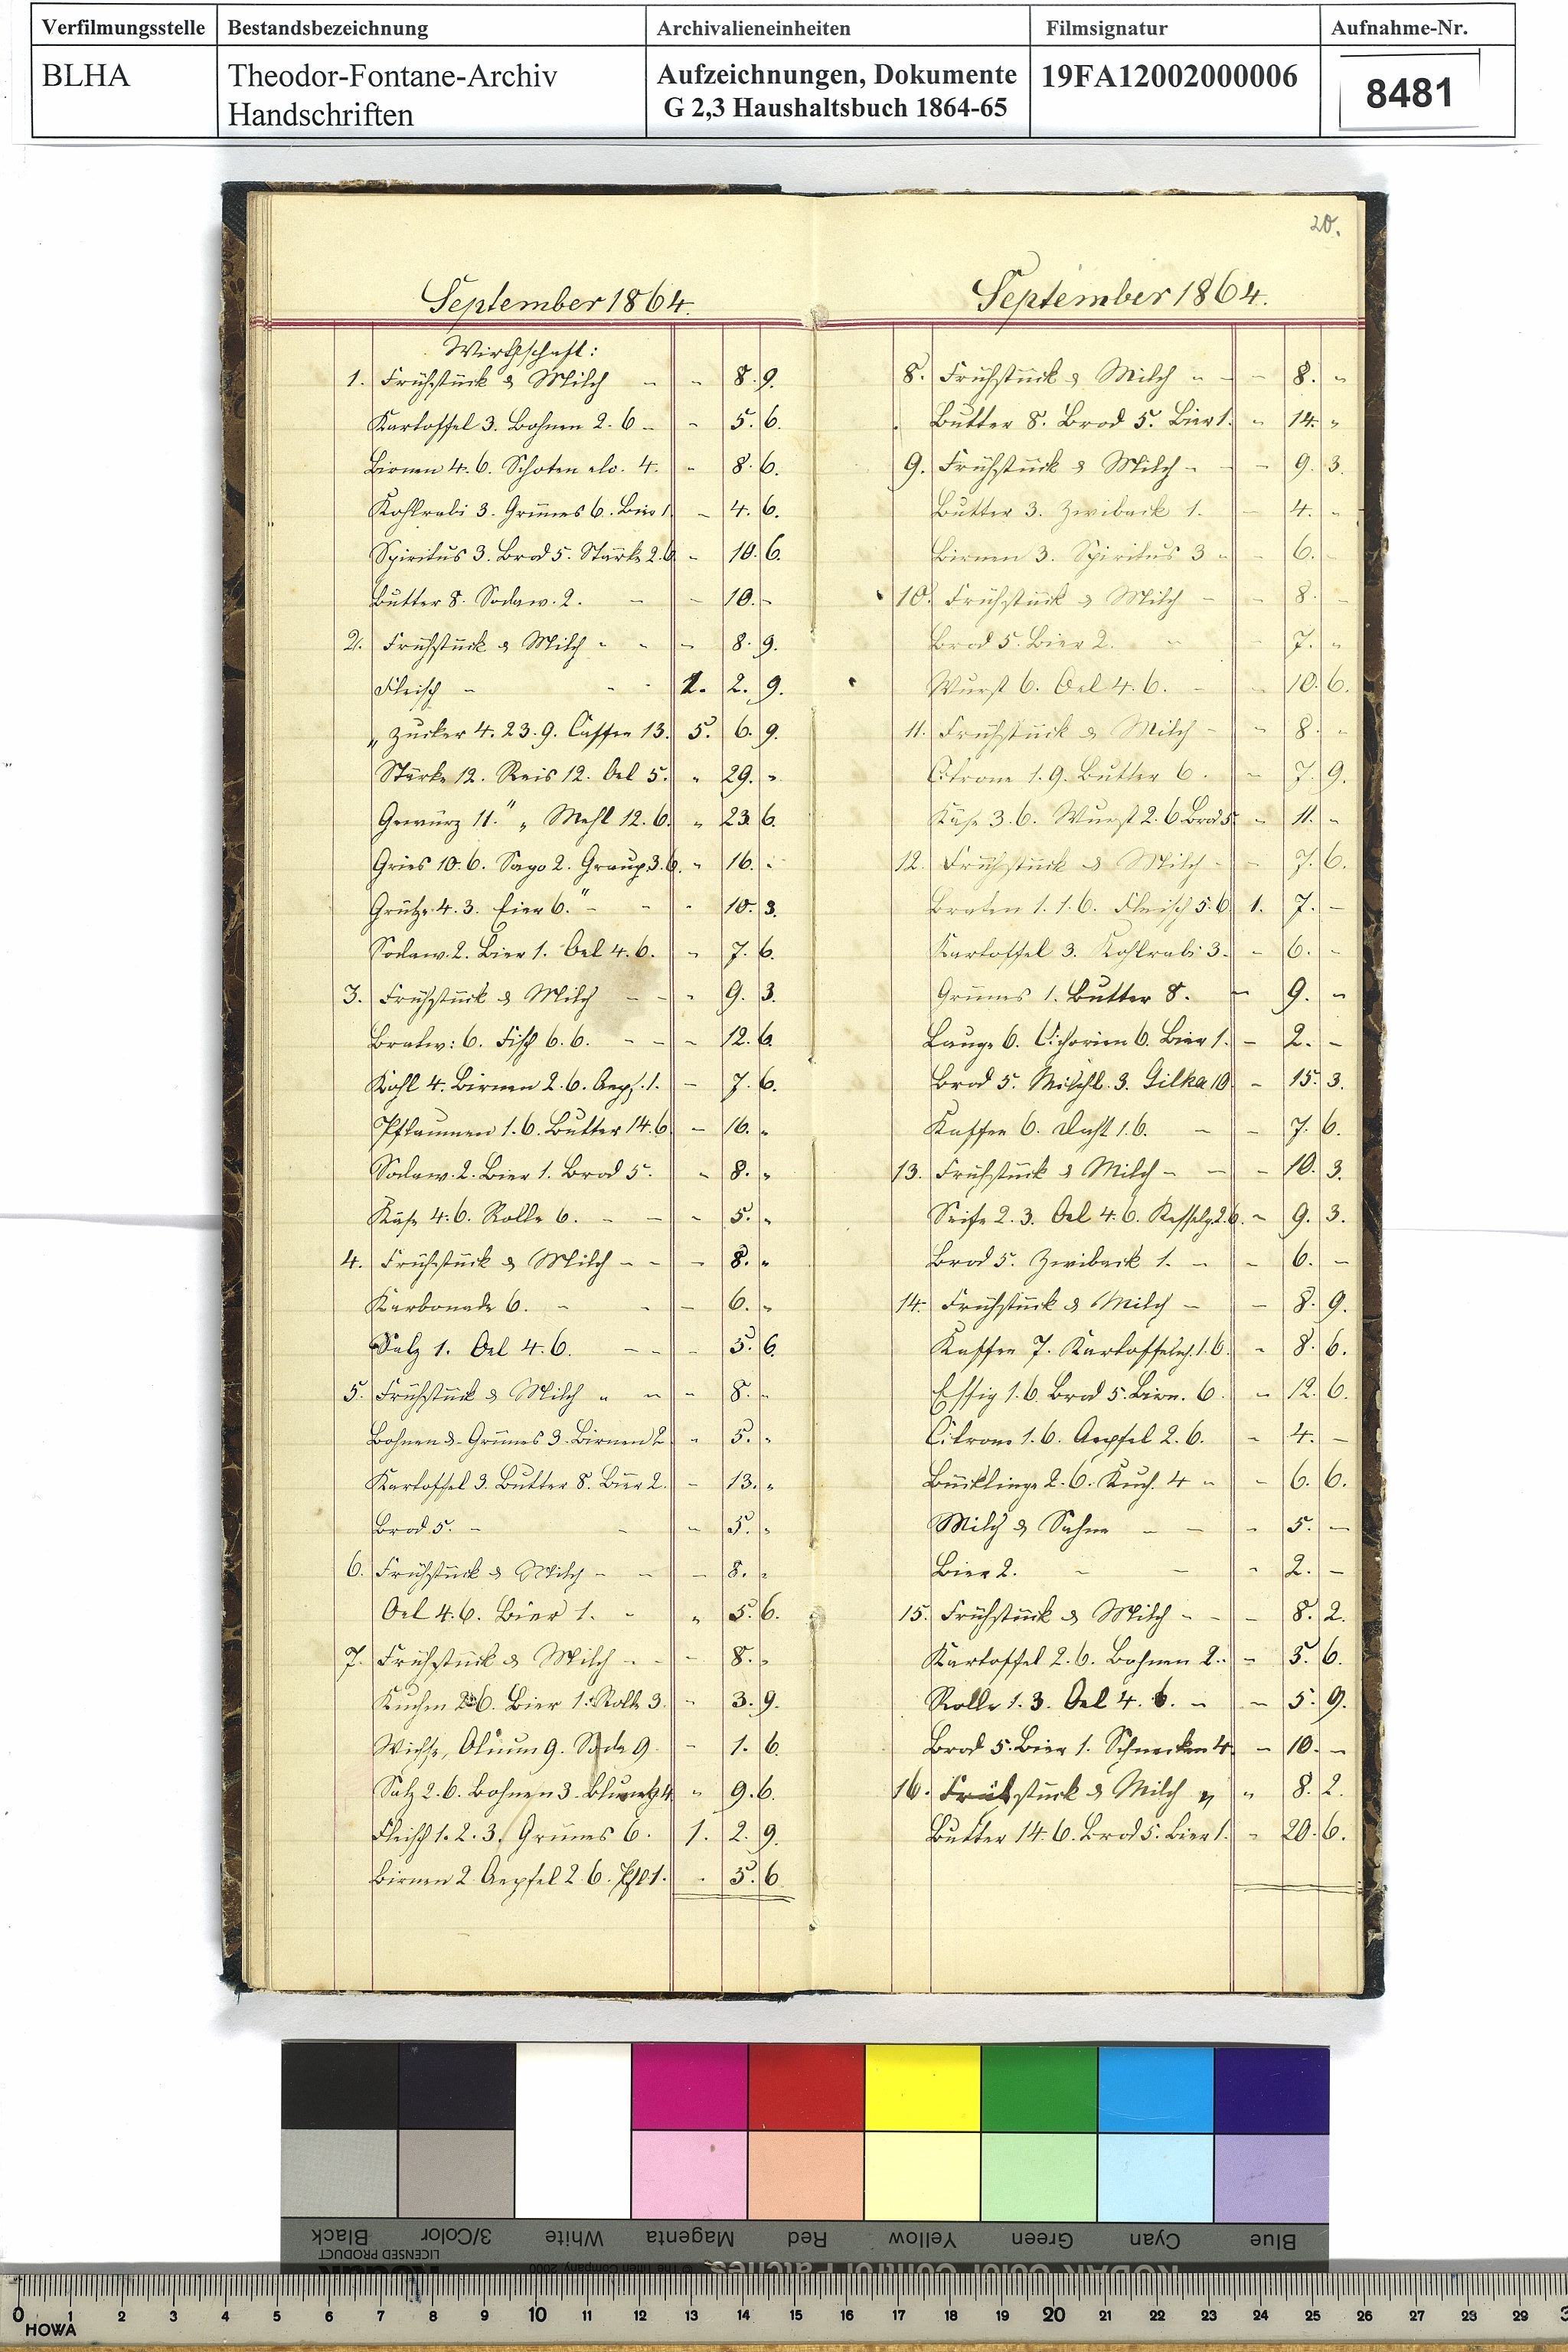 Verfilmungsstelle Bestandsbezeichnung Archivalieneinheiten Filmsignatur Aufnahme-Nr.
BLHA Theodor-Fontane-Archiv Handschriften Aufzeichnungen, Dokumente G 2,3 Haushaltsbuch 1864-65 19FA12002000006 8481
September 1864.
Wirthschaft:
1. Frühstück & Milch - - 8. 9.
Kartoffel 3. Bohnen 2. 6 - - 5. 6.
Birnen 4. 6. Schoten etc. 4. - 8. 6.
Kohlrabi 3. Grünes 6. Bier 1. - 4. 6.
Spiritus 3. Brod 5. Stärke 2. 6 - 10. 6.
Butter 8. Sodaw. 2. - - 10. -
2. Frühstück & Milch - - - 8. 9.
Fleisch - - - 1. 2. 9.
„ Zucker 4. 23. 9. Caffee 13. 5. 6. 9.
Stärke 12. Reis 12. Oel 5. " 29. "
Gewürz 11. " „ Mehl 12. 6. " 23. 6.
Gries 10. 6. Sago 2. Graup. 3. 6. " 16. "
Grütze 4. 3. Eier 6. " - - - 10. 3.
Sodaw. 2. Bier 1. Oel 4. 6. - 7. 6.
3. Frühstück & Milch - - - 9. 3.
Bratw: 6. Fisch 6. 6. - - - 12. 6.
Kohl 4. Birnen 2. 6. Aepf. 1. - 7. 6.
Pflaumen 1. 6. Butter 14. 6 - 16. "
Sodaw. 2. Bier 1. Brod 5. - 8. "
Käse 4. 6. Rolle 6. - - - 5. "
4. Frühstück & Milch - - - 8. "
Karbonade 6. - - - 6. "
Salz 1. Oel 4. 6. - - - 5. 6.
5. Frühstück & Milch " - - 8. "
Bohnen & Grünes 3. Birnen 2 - 5. "
Kartoffel 3. Butter 8. Bier 2. - 13. "
Brod 5. - - - 5. "
6. Frühstück & Milch - - - 8. "
Oel 4. 6. Bier 1. - " 5. 6.
7. Frühstück & Milch - - - 8. "
Kuchen 2. 6. Bier 1. Rolle 3. - 3. 9.
Wichse, Alaun 9. Soda 9 - 1. 6.
Salz 2. 6. Bohnen 3. 4 " 9. 6.
Fleisch 1. 2. 3. Grünes 6. 1. 2. 9.
Birnen 2 Aepfel 2. 6. Pfl 1. - 5. 6
20.
September 1864.
8. Frühstück & Milch - - - 8. "
Butter 8. Brod 5. Bier 1. " 14. "
9. Frühstück & Milch - - - 9. 3.
Butter 3. Zwiback 1. - 4. -
Birnen 3. Spiritus 3 - - 6. -
10. Frühstück & Milch - - 8. -
Brod 5. Bier 2. - - 7. "
Wurst 6. Oel 4. 6. - - 10. 6.
11. Frühstück & Milch - - 8. "
Citrone 1. 9. Butter 6. - 7. 9.
Käse 3. 6. Wurst 2. 6 Brod 5. - 11. "
12. Frühstück & Milch - - 7. 6.
Braten 1. 1. 6. Fleisch 5. 6 1. 7. -
Kartoffel 3. Kohlrabi 3. - 6. -
Grünes 1. Butter 8. - 9. "
Lauge 6. Cichorien 6. Bier 1. - 2. -
Brod 5. 3. Gilka 10 - 15. 3.
Kaffee 6. Docht 1. 6. - - 7. 6.
13. Frühstück & Milch - - - 10. 3.
Seife 2. 3. Oel 4. 6. 2. 6. - 9. 3.
Brod 5. Zwiback 1. - - 6. -
14. Frühstück & Milch - - 8. 9.
Kaffee 7. 1. 6. - 8. 6.
Essig 1. 6. Brod 5. Birn. 6. - 12. 6.
Citrone 1. 6. Aepfel 2. 6. - 4. -
Bücklinge 2. 6. Kuch. 4 - - 6. 6.
Milch & Sahne - - - 5. -
Bier 2. - - - 2. -
15. Frühstück & Milch - - - 8. 2.
Kartoffel 2. 6. Bohnen 2. - - 5. 6.
Rolle 1. 3. Oel 4. 6. - - 5. 9.
Brod 5. Bier 1. Schnecken 4. - 10. -
16. Frühstück & Milch " " 8. 2.
Butter 14. 6. Brod 5. Bier 1. - 20. 6.
Black 3/Color White Magenta Red Yellow Green Cyan Blue
LICENSED PRODUCT
Kodak © The Tiffen Company, 2000 KODAK Color Control Patches
0 1 2 3 4 5 6 7 8 9 10 11 12 13 14 15 16 17 18 19 20 21 22 23 24 25 26 27 28 29 3
HOWA